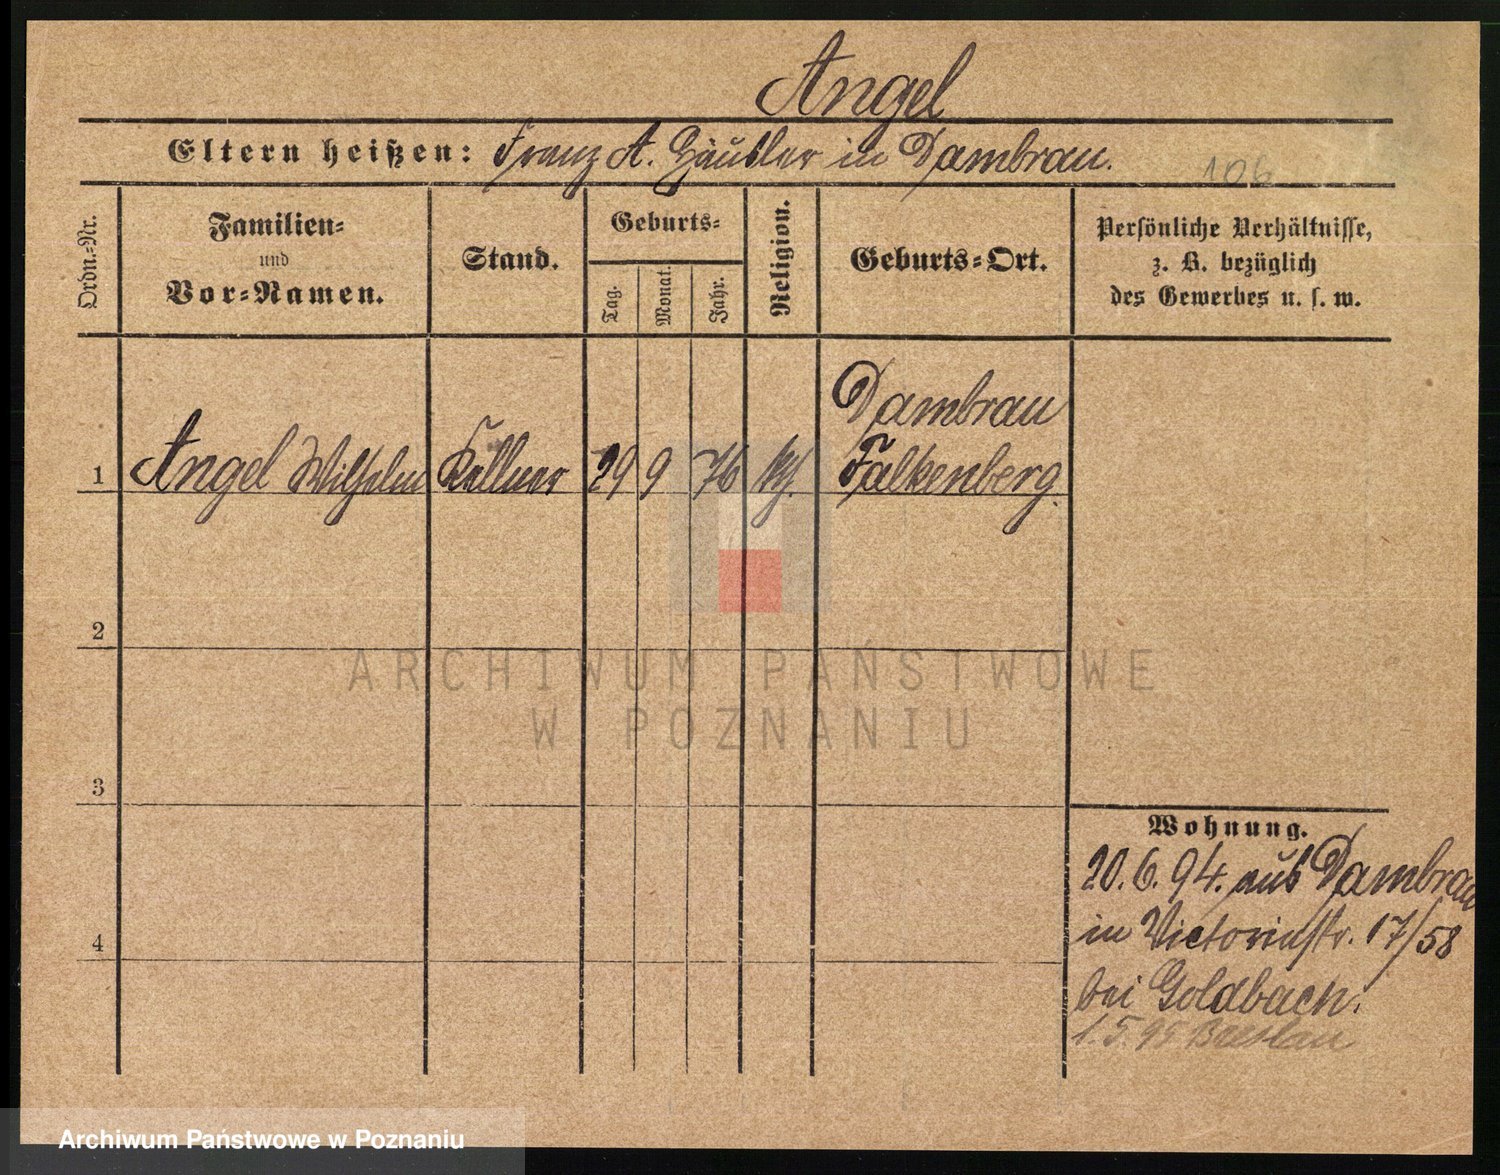 Angel
Eltern heißen: Franz A. Häusler in Dambrau.
106
Ordn.-Nr.
Familien-
und
Vor-Namen.
Stand.
Geburts-
Tag.
Monat.
Jahr.
Religion.
Geburts-Ort.
Persönliche Verhältnisse,
z. B. bezüglich
des Gewerbes u. s. w.
Dambrau
1 Angel Wilhelm Kellner 29 9 76 Falkenberg.
2
ARCHIWUM PAŃSTWOWE
W POZNANIU
3
Wohnung.
20. 6. 94. aus Dambrau
in Victoriastr. 17/58
4
bei Goldbach.
1. 5. 95 Breslau
Archiwum Państwowe w Poznaniu